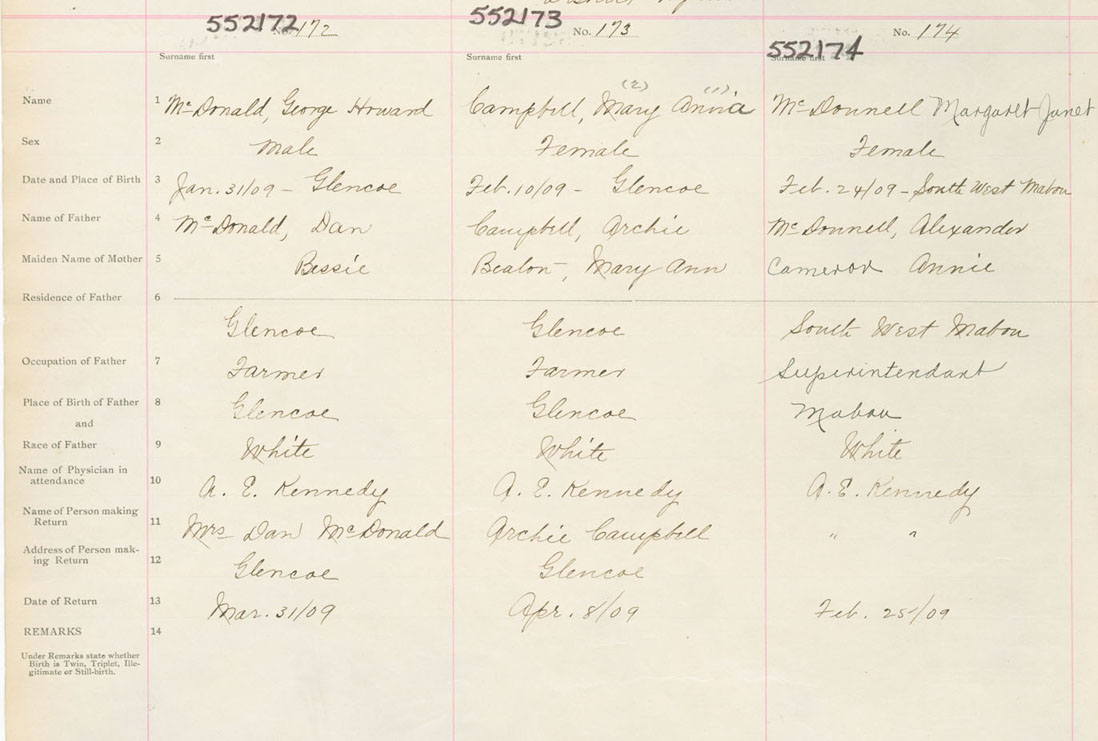 552172 No. 172 552173 No. 173 552174 No. 174
Surname first Surname first Surname first
(2) (1)
Name 1 McDonald, George Howard Campbell, Mary Annia McDonnell Margaret Janet
Sex 2 Male Female Female
Date and Place of Birth 3 Jan. 31/09 - Glencoe Feb. 10/09 - Glencoe Feb. 24/09 - South West Mabou
Name of Father 4 McDonald, Dan Campbell, Archie McDonnell, Alexander
Maiden Name of Mother 5 Bessie Beaton, Mary Ann Cameron Annie
Residence of Father 6
Glencoe Glencoe South West Mabou
Occupation of Father 7 Farmer Farmer Superintendant
Place of Birth of Father 8 Glencoe Glencoe Mabou
and
Race of Father 9 White White White
Name of Physician in
attendance 10 A. E. Kennedy A. E. Kennedy A. E. Kennedy
Name of Person making
Return 11 Mrs Dan McDonald Archie Campbell " "
Address of Person mak-
ing Return 12 Glencoe Glencoe
Date of Return 13 Mar. 31/09 Apr. 8/09 Feb. 25/09
REMARKS 14
Under Remarks state whether
Birth is Twin, Triplet, Ille-
gitimate or Still-birth.